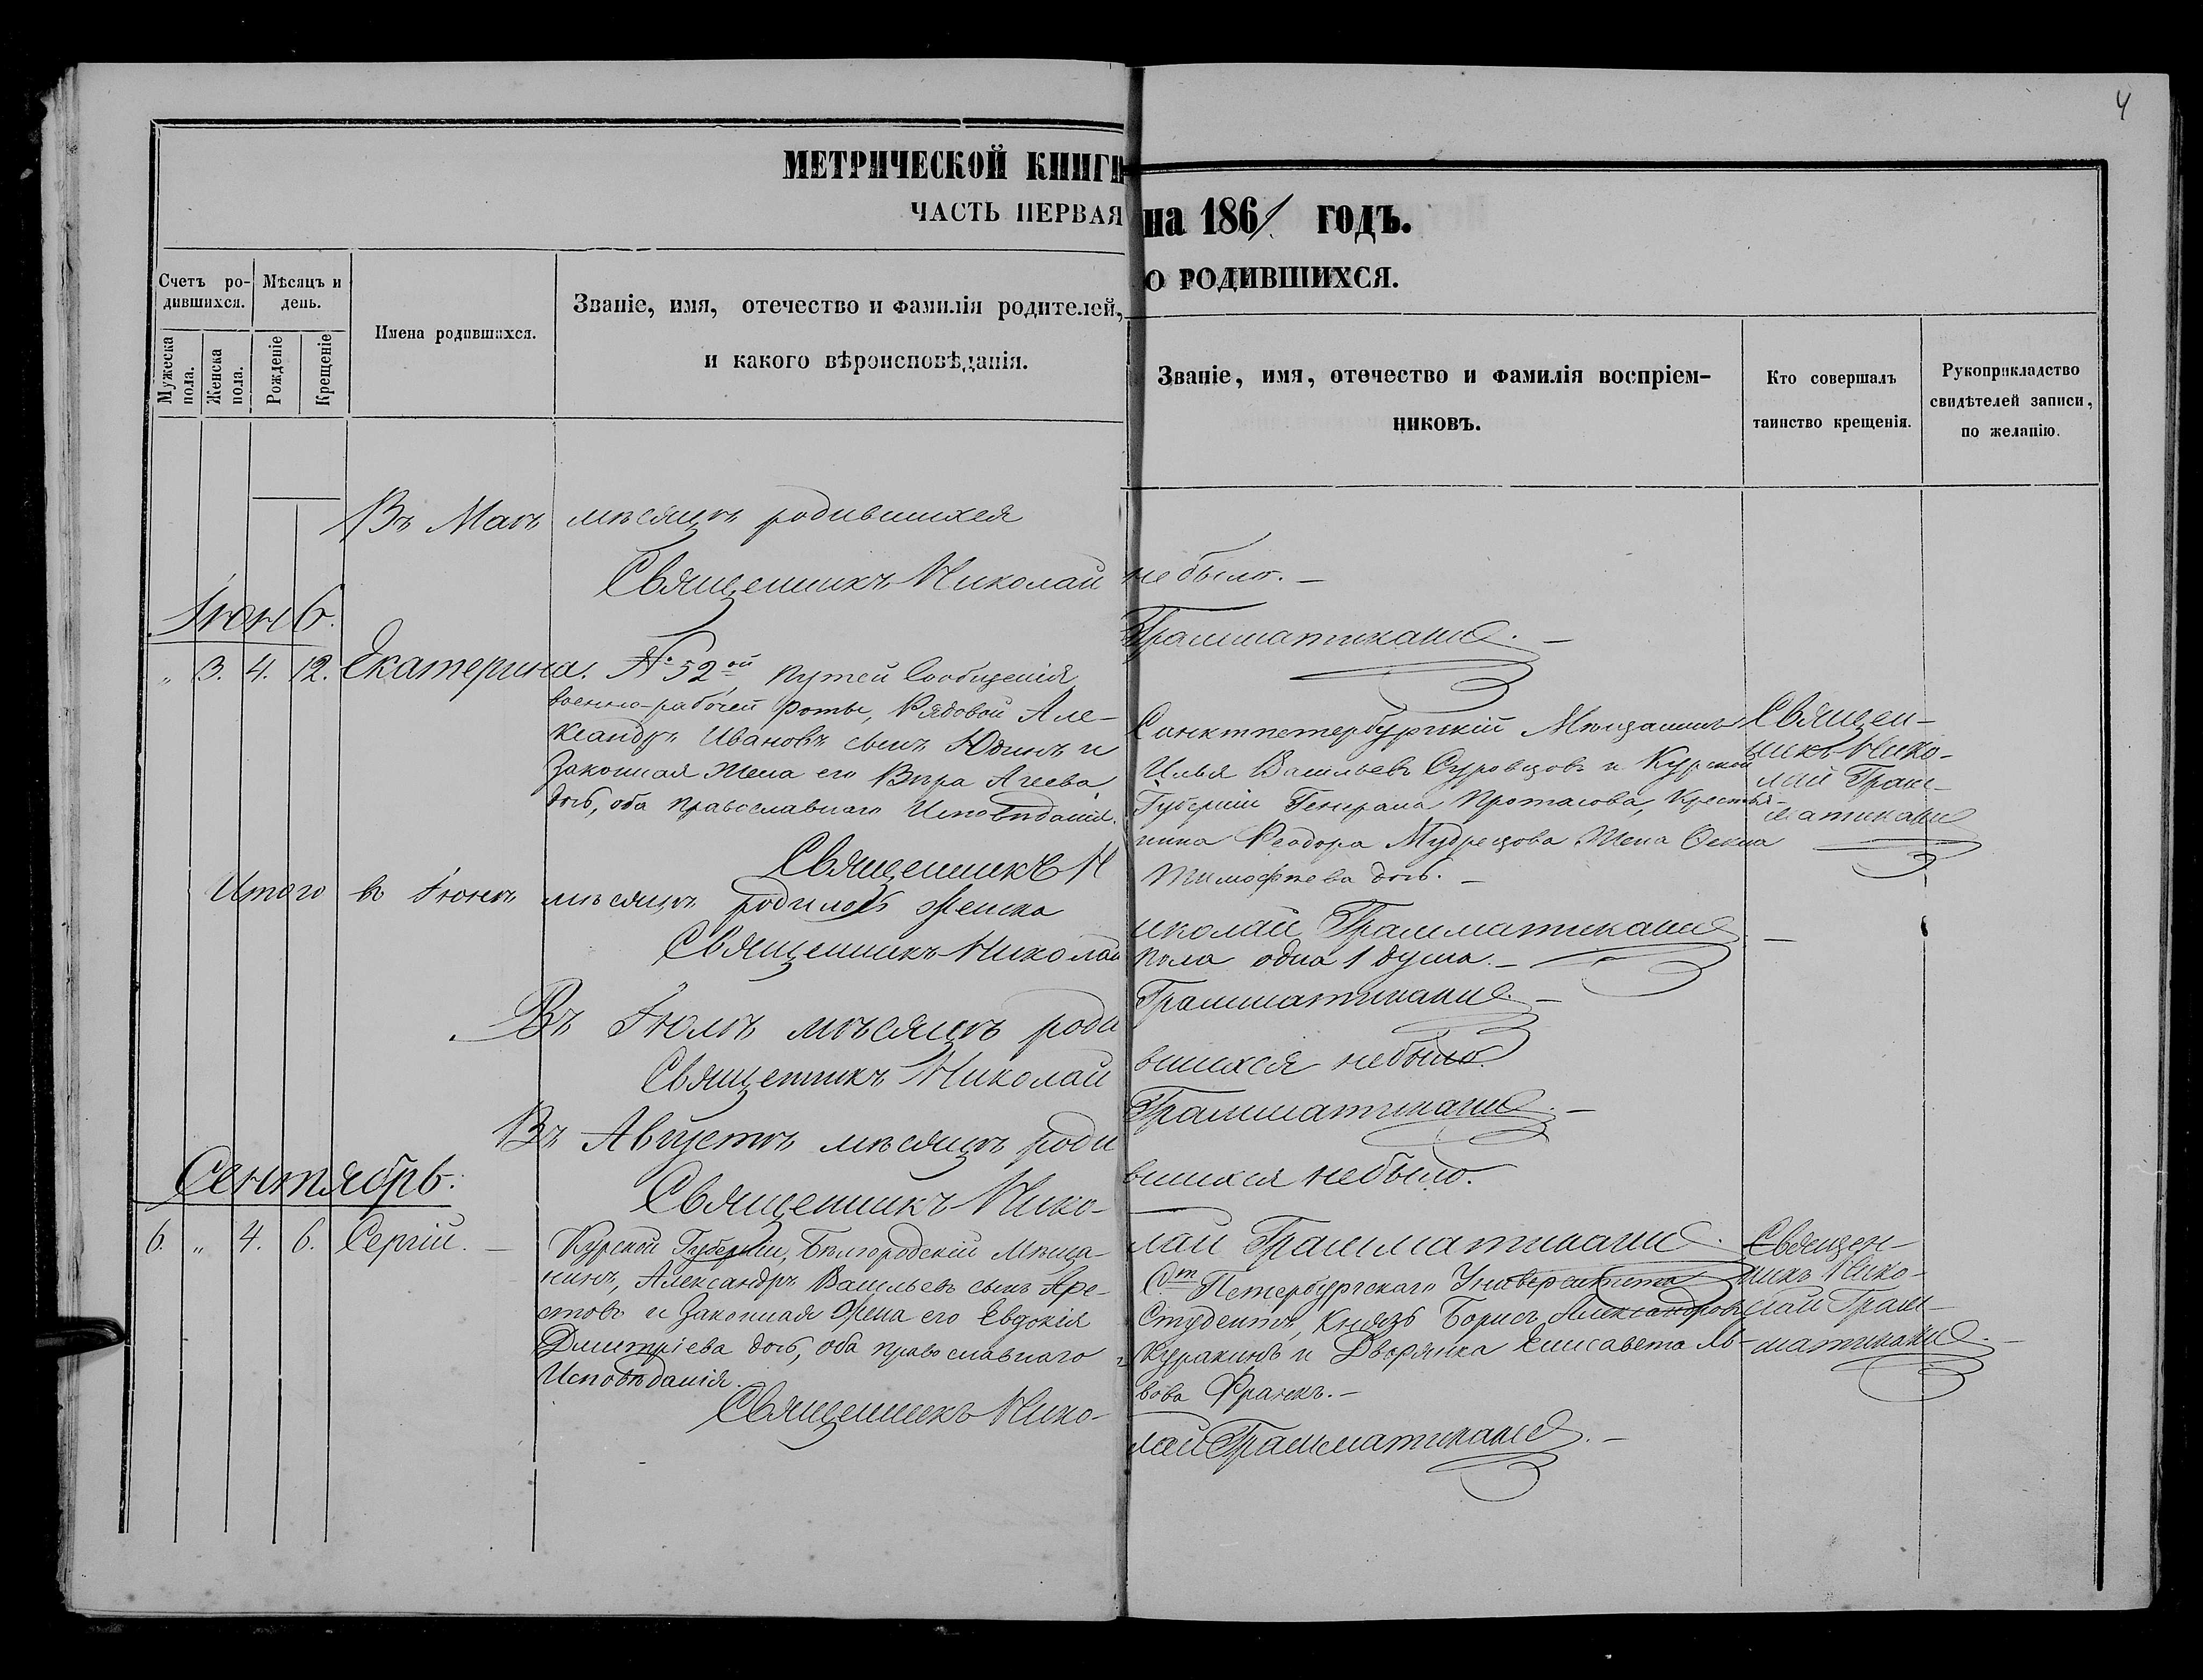 4
МЕТРИЧЕСКОЙ КНИГИ
ЧАСТЬ ПЕРВАЯ
на 1861 годъ.
О РОДИВШИХСЯ.
Счетъ ро-
дившихся.
Мѣсяцъ и
день.
Мужеска
пола.
Женска
пола.
Рожденіе
Крещеніе
Имена родившихся.
Званіе, имя, отечество и фамилія родителей,
и какого вѣроисповѣданія.
Званіе, имя, отечество и фамилія воспріем-
никовъ.
Кто совершалъ
таинство крещенія.
Рукоприкладство
свидѣтелей записи,
по желанію.
Въ Маѣ мѣсяцѣ родившихся
небыло. —
Священникъ Николай
Грамматикати. —
Іюнь.
„ 3. 4. 12. Екатерина.
№ 52ой Путей Сообщенія
военно-рабочей роты, Рядовой Але-
ксандръ Ивановъ сынъ Юдинъ и
Законная Жена его Вѣра Агеева
дочь, оба Православнаго Исповѣданія.
Санктпетербургскій Мѣщанинъ
Илья Васильевъ Суровцовъ и Курской
Губерніи Генерала Протасова, Крестья-
нина Феодора Мудрецова Жена
Тимофѣева дочь. —
Священ-
никъ Нико-
лай Грам-
матикати
Священникъ Н
иколай Грамматикати —
Итого въ Іюнѣ мѣсяцѣ родилось Женска
пола одна 1 душа. —
Священникъ Николай
Грамматикати. —
Въ Іюлѣ мѣсяцѣ роди
вшихся небыло.
Священникъ Николай
Грамматикати. —
Въ Августѣ мѣсяцѣ роди
вшихся небыло.
Священникъ Нико-
лай Грамматикати.
Сентябрь.
6. „ 4. 6. Сергій. —
Курской Губерніи, Бѣлгородскій Мѣща-
нинъ, Александръ Васильевъ сынъ Кре-
стовъ и Законная Жена его Евдокія
Дмитріева дочь, оба православнаго
Исповѣданія.
Ст Петербургскаго Университета
Студентъ, Князь Борисъ Александровъ
Куракинъ и Дворянка Елисавета Ль-
вова Франкъ. —
Священ-
никъ Нико-
лай Грам-
матикати. —
Священникъ Нико-
лай Грамматикати. —